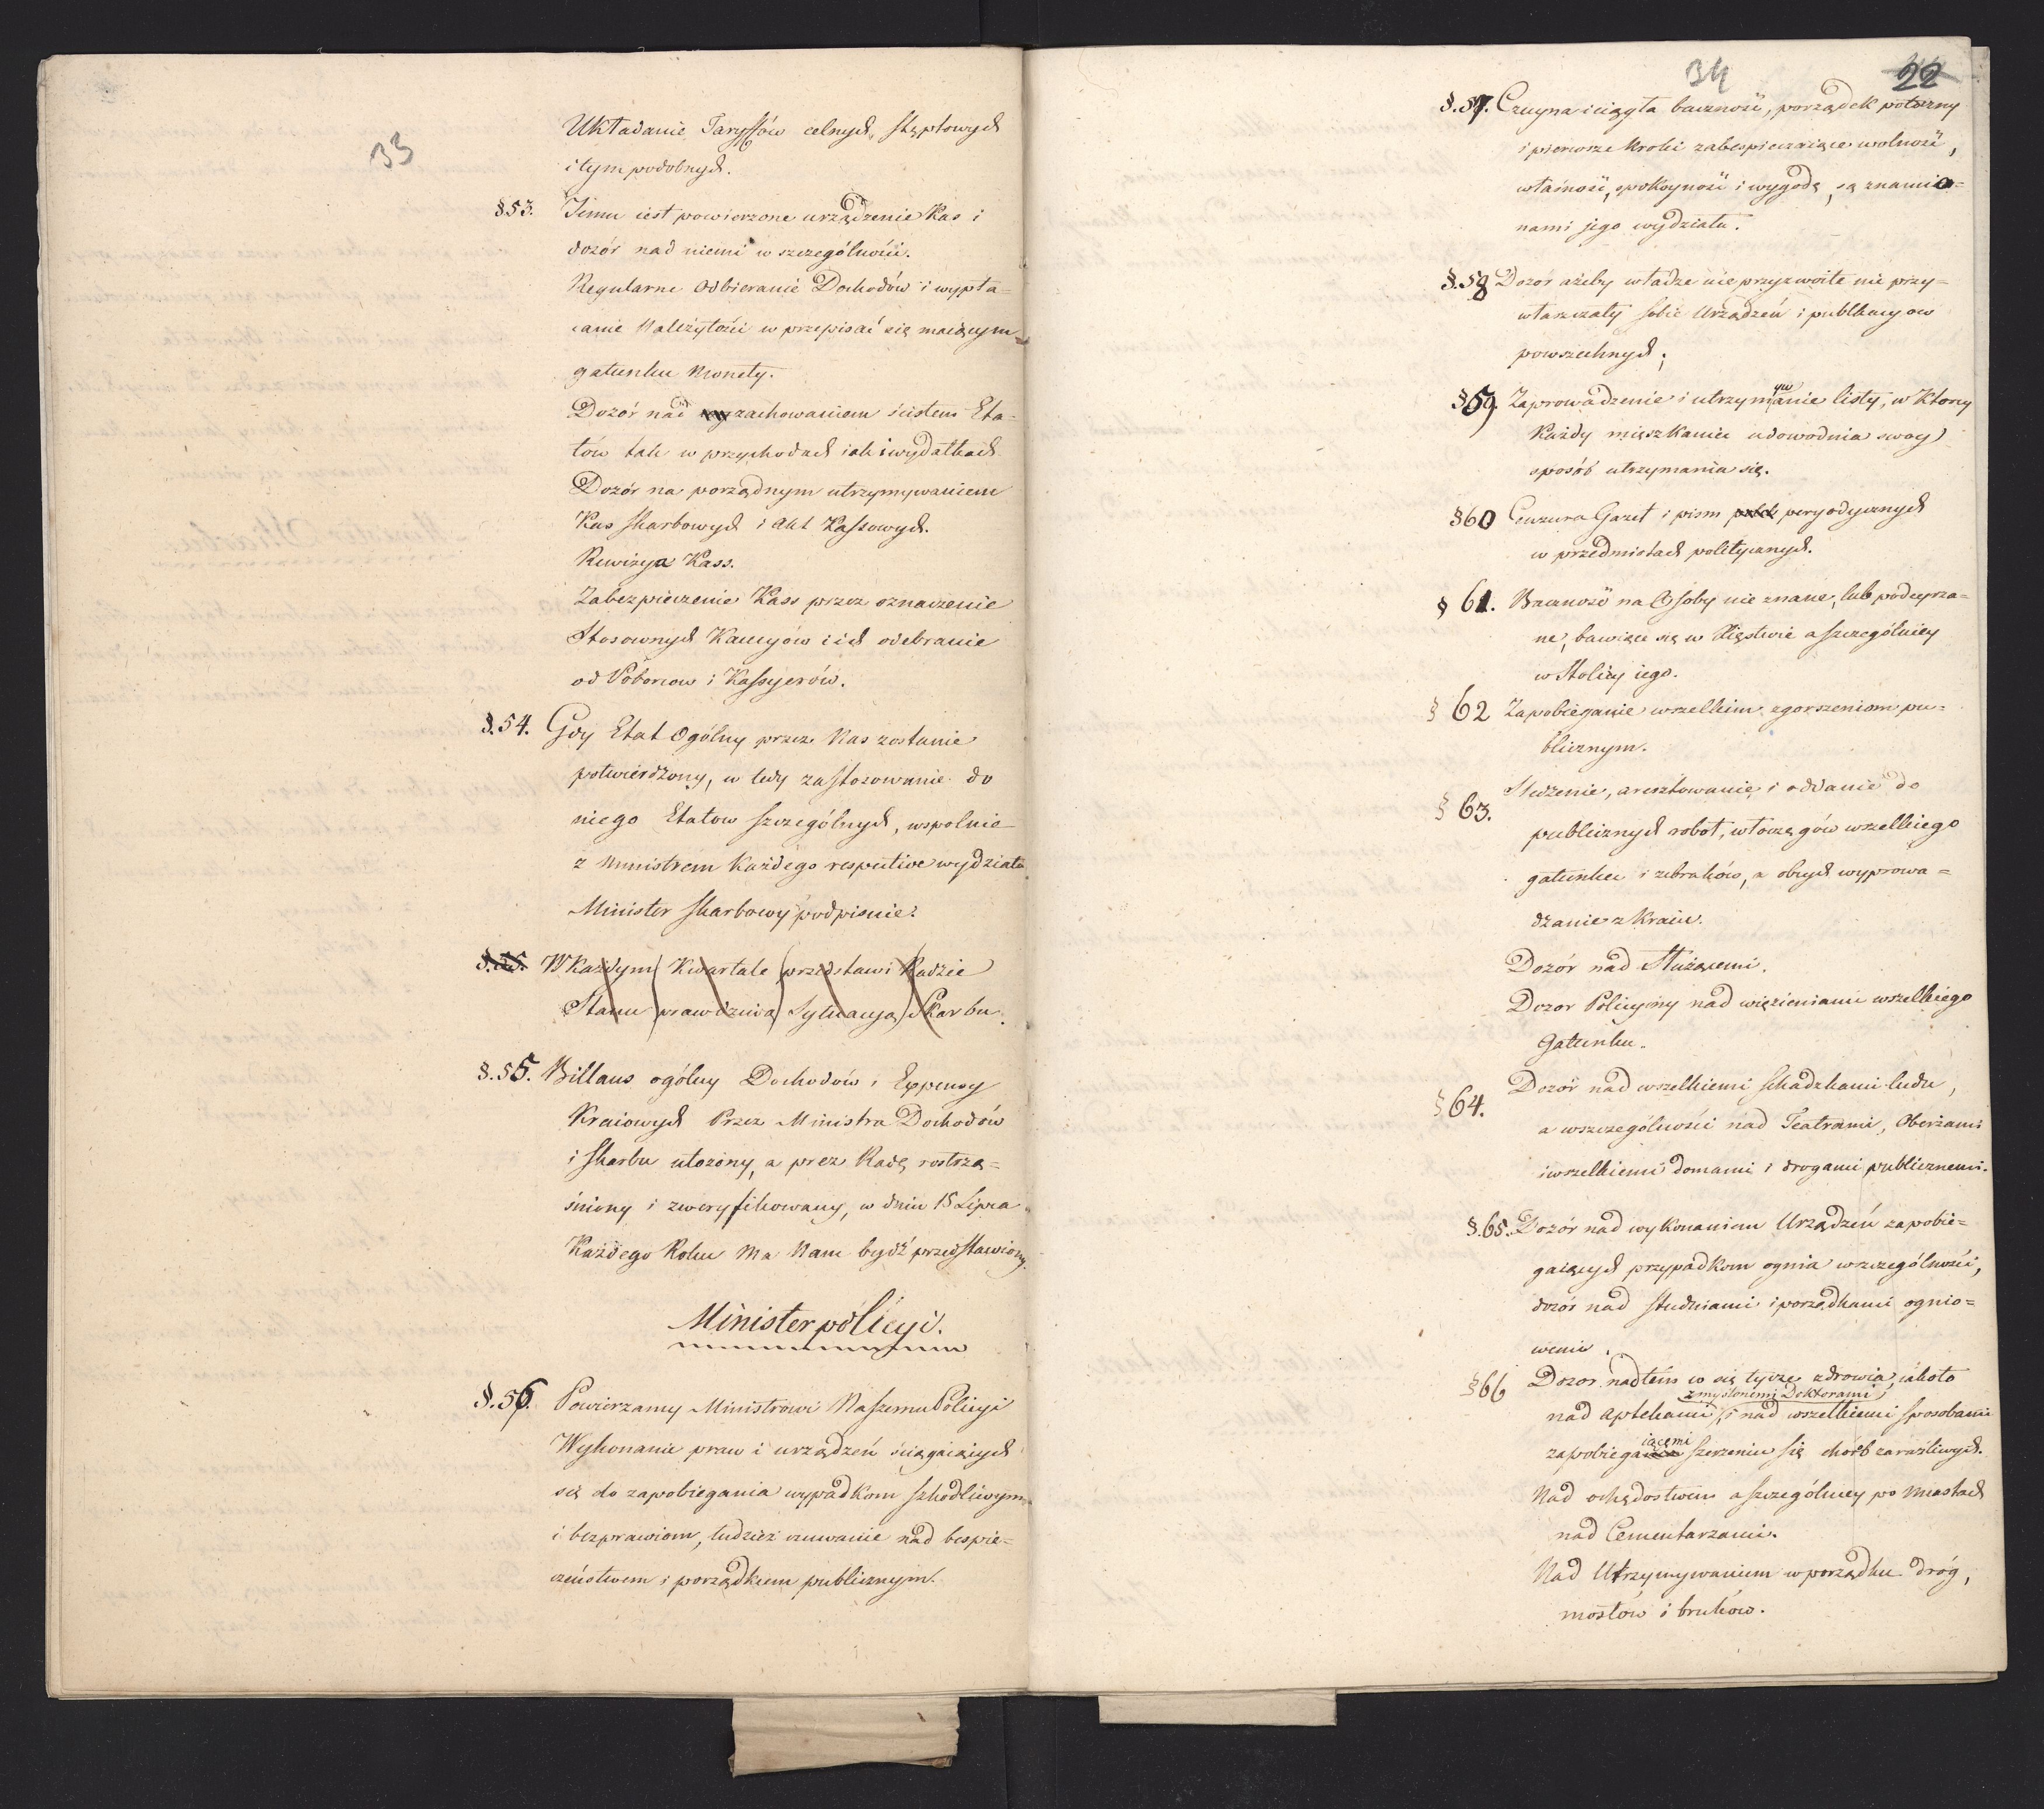 33
Układanie Taryffów celnych, stęplowych
i tym podobnych.
§ 53. Jemu iest powierzone urządzenie Kas i
dozór nad niemi w szczególności.
Regularne Odbieranie Dochodów i wypła=
canie Należytości w przepisać się maiącym
gatunku Monety.
Dozór nad zachowaniem ścisłem Eta=
tów tak w przychodach iak i wydatkach
Dozór na porządnym utrzymywaniem
Kas skarbowych i Akt Kassowych.
Rewizya Kass.
Zabezpieczenie Kass przez oznaczenie
Stosownych Kaucyów i ich odebranie
od Poborcow i Kassyerów.
§. 54. Gdy Etat Ogólny przez Nas zostanie
potwierdzony, w tedy zastosowanie do
niego Etatow szczególnych, wspolnie
z Ministrem Każdego respective wydziału
Minister skarbowy podpisuie.
§. 55. W Każdym Kwartale przedstawi Radzie
Stanu prawdziwą Sytuacyą Skarbu.
§. 55. Billans ogólny Dochodów i Expensy
Kraiowych Przez Ministra Dochodów
i skarbu ułożony, a prez Radę roztrzą=
śniony i zweryfikowany, w dniu 15 Lipca
Każdego Roku Ma Nam bydź przedstawiony.
Minister policyi.
§. 56. Powierzamy Ministrowi Naszemu Policyi
Wykonanie praw i urządzeń ściągaiących
się do zapobiegania wypadkom szkodliwym
i bezprawiom, tudzież czuwanie nad bespie=
czeństwem i porządkiem publicznym.
34
22
§. 57. Czuyna i ciągła baczność, porządek potoczny
i pierwsze kroki zabespieczaiące wolność,
własność, spokoyność i wygodę, są znamio=
nami jego wydziału.
§. 58 Dozór ażeby władze nie przyzwoite nie przy=
właszczały sobie Urządzeń i publikacyow
powszechnych;
§ 59. Zaprowadzenie i utrzymywanie listy, w Ktorey
Każdy mięszkaniec udowodnia swoy
sposób utrzymania się.
§ 60 Cenzura Gazet i pism peryodycznych
w przedmiotach politycznych.
§ 61. Baczność na Osoby nie znane, lub podeyrza=
ne, bawiące się w Xięstwie a szczególniey
w Stolicy iego.
§ 62 Zapobieganie wszelkim zgorszeniom pu=
blicznym.
§ 63. Śledzenie, aresztowanie i oddanie do
publicznych robot, włóczęgów wszelkiego
gatunku i żebraków, a obcych wyprowa=
dzanie z Kraiu.
Dozór nad Służącemi.
Dozor Policyiny nad więzieniami wszelkiego
Gatunku.
§ 64. Dozór nad wszelkiemi schadzkami ludu,
a wszczególności nad Teatrami, Oberżami
i wszelkiemi domami i drogami publicznemi.
§. 65. Dozór nad wykonaniem Urządzeń zapobie=
gaiących przypadkom ognia wszczególności,
dozór nad studniami i porządkami ognio=
wemi.
§ 66 Dozor nadtém co się tycze zdrowia, iakoto
zmyślonemi Doktorami
nad Aptekami, i nad wszelkiemi sposobami
iącemi
zapobiega szerzeniu się chorób zaraźliwych.
Nad ochędostwem a szczególniey po Miastach
nad Cementarzami.
Nad Utrzymywaniem w porządku dróg,
mostów i bruków.